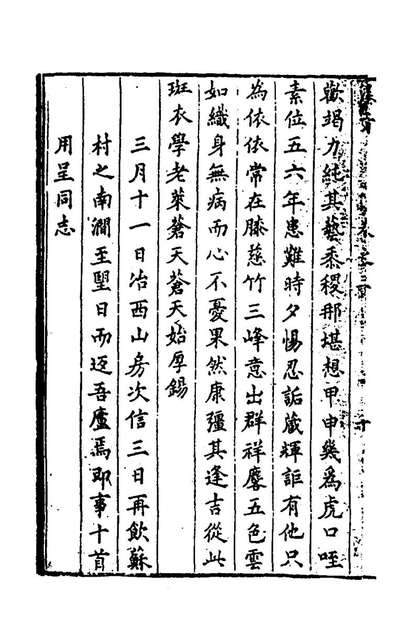 歡竭力純其藝黍稷那堪想甲申幾為虎口咥
素位五六年患難時夕惕忍詬藏輝詎有他只
為依依常在膝慈竹三峰意出群祥麐五色雲
如織身無病而心不憂果然康彊其逢吉從此
斑衣學老萊蒼天蒼天始厚錫
三月十一日冶西山房次信三日再飲蘇
村之南澗至堅日而返吾廬焉即事十首
用呈同志